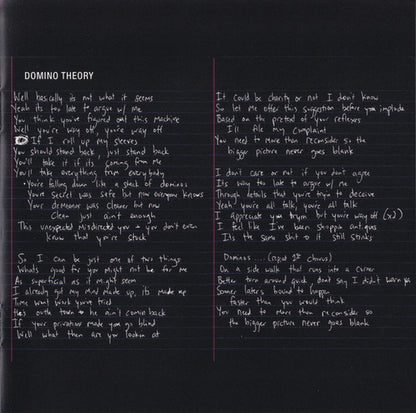 DOMINO THEORY
Well basically its not what it seems
Yeah its too late to argue w/ me
You think you've figured out this machine
Well you're way off, you're way off
If I roll up my sleeves
You should stand back, just stand back
You'll take it if its coming from me
You'll take everything from everybody
You're falling down like a stack of dominos
Youre secret was safe but now everyone knows
Your demeanor was clever but now
Clean just aint enough
This unexpected misdirected you & you don't even
know that you're stuck
So I can be just one of two things
Whats good for you might not be for me
As superficial as it might seem
I already got my mind made up, its made up
Time wont bring you've tried
He's outta town & he ain't comin back
If your privation made you go blind
Well what then are you lookin at
It could be charity or not I don't know
So let me offer this suggestion before you implode
Based on the pretext of your reflexes
I'll file my complaint
You need to more than reconsider so the
bigger picture never goes blank
I don't care or not if you don't agree
Its way too late to argue w/ me
Through details that you're tryin to deceive
Yeah you're all talk, you're all talk
I appreciate you tryin but you're way off (x2)
I feel like I've been shoppin antiques
Its the same shit & it still stinks
Dominos .... (repeat 1st chorus)
On a side walk that runs into a corner
Better turn around quick, dont say I didn't warn ya
Sooner laters bound to happen
faster than you would think
You need to more than reconsider so
the bigger picture never goes blank